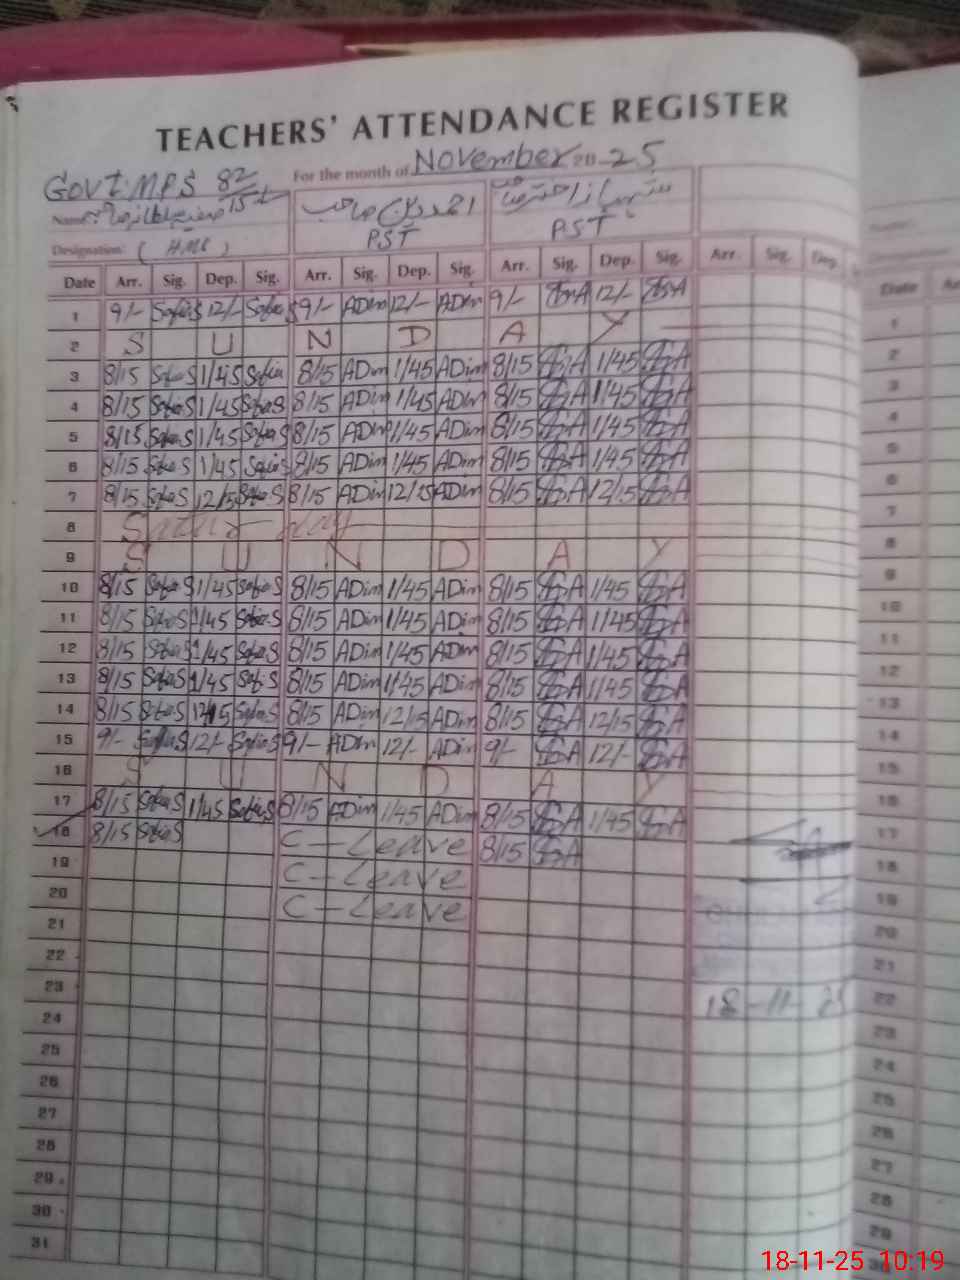 TEACHERS' ATTENDANCE REGISTER
For the month of November 20-25
GOVT: MPS 82
15-L
Name
احمد دین صاحب
Designation: (HM)
PST
PST
Date Arr. Sig. Dep. Sig. Arr. Sig. Dep. Sig. Arr. Sig. Dep. Sig. Arr. Sig. Dep.
1 9/- Sofia S 12/- Sofia S 9/- ADin 12/- ADin 9/- 12/-
2 S U N D A Y
3 8/15 Sofia S 1/45 Sofia 8/15 ADin 1/45 ADin 8/15 1/45
4 8/15 Sofia S 1/45 Sofia S 8/15 ADin 1/45 ADin 8/15 1/45
5 8/15 Sofia S 1/45 Sofia S 8/15 ADin 1/45 ADin 8/15 1/45
6 8/15 Sofia S 1/45 Sofia S 8/15 ADin 1/45 ADin 8/15 1/45
7 8/15 Sofia S 12/15 Sofia S 8/15 ADin 12/15 ADin 8/15 12/15
8 Satur-day
9 S U N D A Y
10 8/15 Sofia S 1/45 Sofia S 8/15 ADin 1/45 ADin 8/15 1/45
11 8/15 Sofia S 1/45 Sofia S 8/15 ADin 1/45 ADin 8/15 1/45
12 8/15 Sofia S 1/45 Sofia S 8/15 ADin 1/45 ADin 8/15 1/45
13 8/15 Sofia S 1/45 Sofia S 8/15 ADin 1/45 ADin 8/15 1/45
14 8/15 Sofia S 12/15 Sofia S 8/15 ADin 12/15 ADin 8/15 12/15
15 9/- Sofia S 12/- Sofia S 9/- ADin 12/- ADin 9/- 12/-
16 S U N D A Y
17 8/15 Sofia S 1/45 Sofia S 8/15 ADin 1/45 ADin 8/15 1/45
18 8/15 Sofia S C-Leave 8/15
19 C-Leave
20 C-Leave
21
22
23
18-11-25
24
25
26
27
28
29
30
31
Date
1
2
3
4
5
6
7
8
9
10
11
12
13
14
15
16
17
18
19
20
21
22
23
24
25
26
27
28
29
18-11-25 10:19